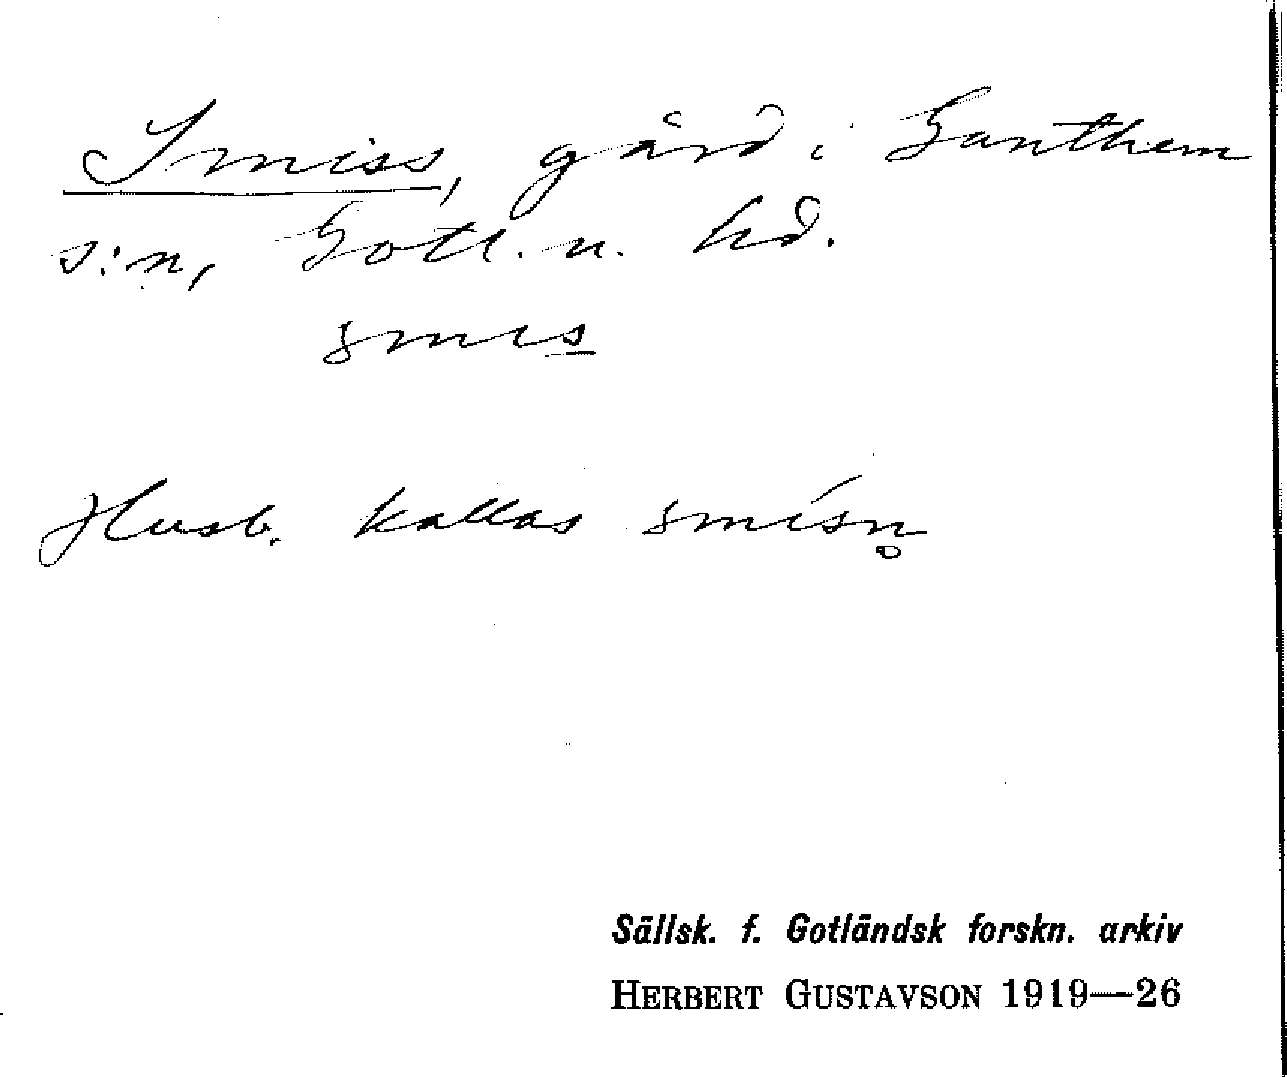 Smiss, gård i Ganthem
s:n, Gotl. n. hd.
smis
Husb. kallas smísn̥
Sällsk. f. Gotländsk forskn. arkiv
HERBERT GUSTAVSON 1919—26